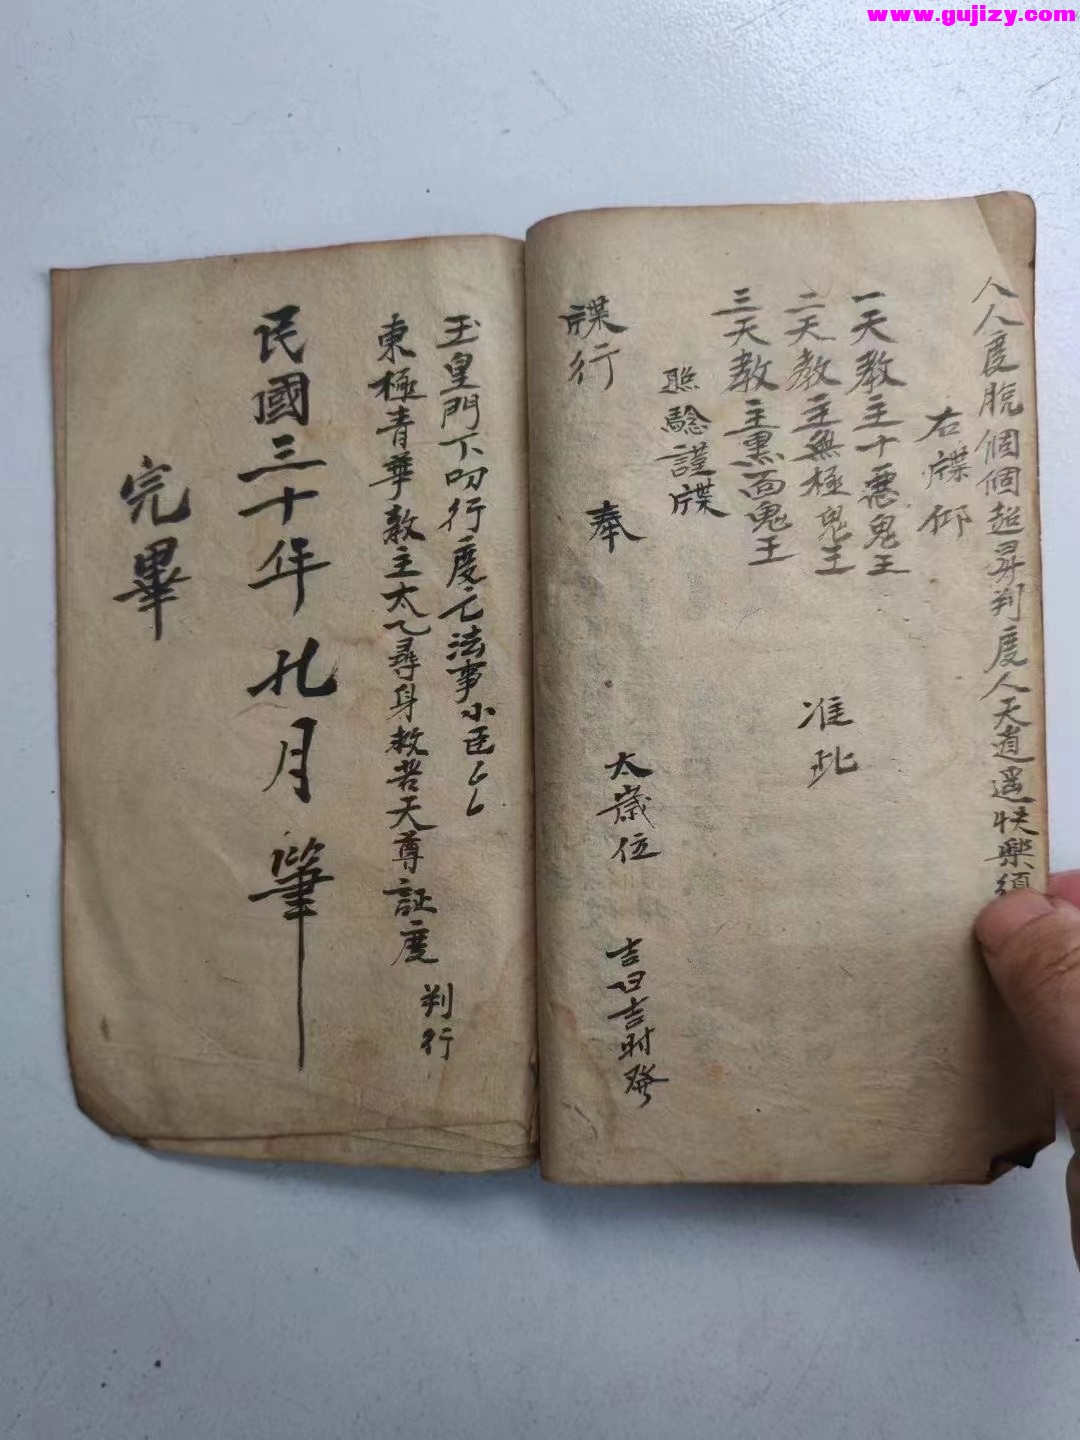 www.gujizy.com
人人度脫個個超昇判度人天逍遥快樂須
右牒仰
一天教主十惡鬼王
二天教主無極鬼王
准此
三天教主黑面鬼王
照驗謹牒
牒行
奉
太歲位
吉日吉时發
玉皇門下叨行度亡法事小臣厶厶
東極青華教主太乙尋身救苦天尊証度
判行
民國三十年九月筆
完畢